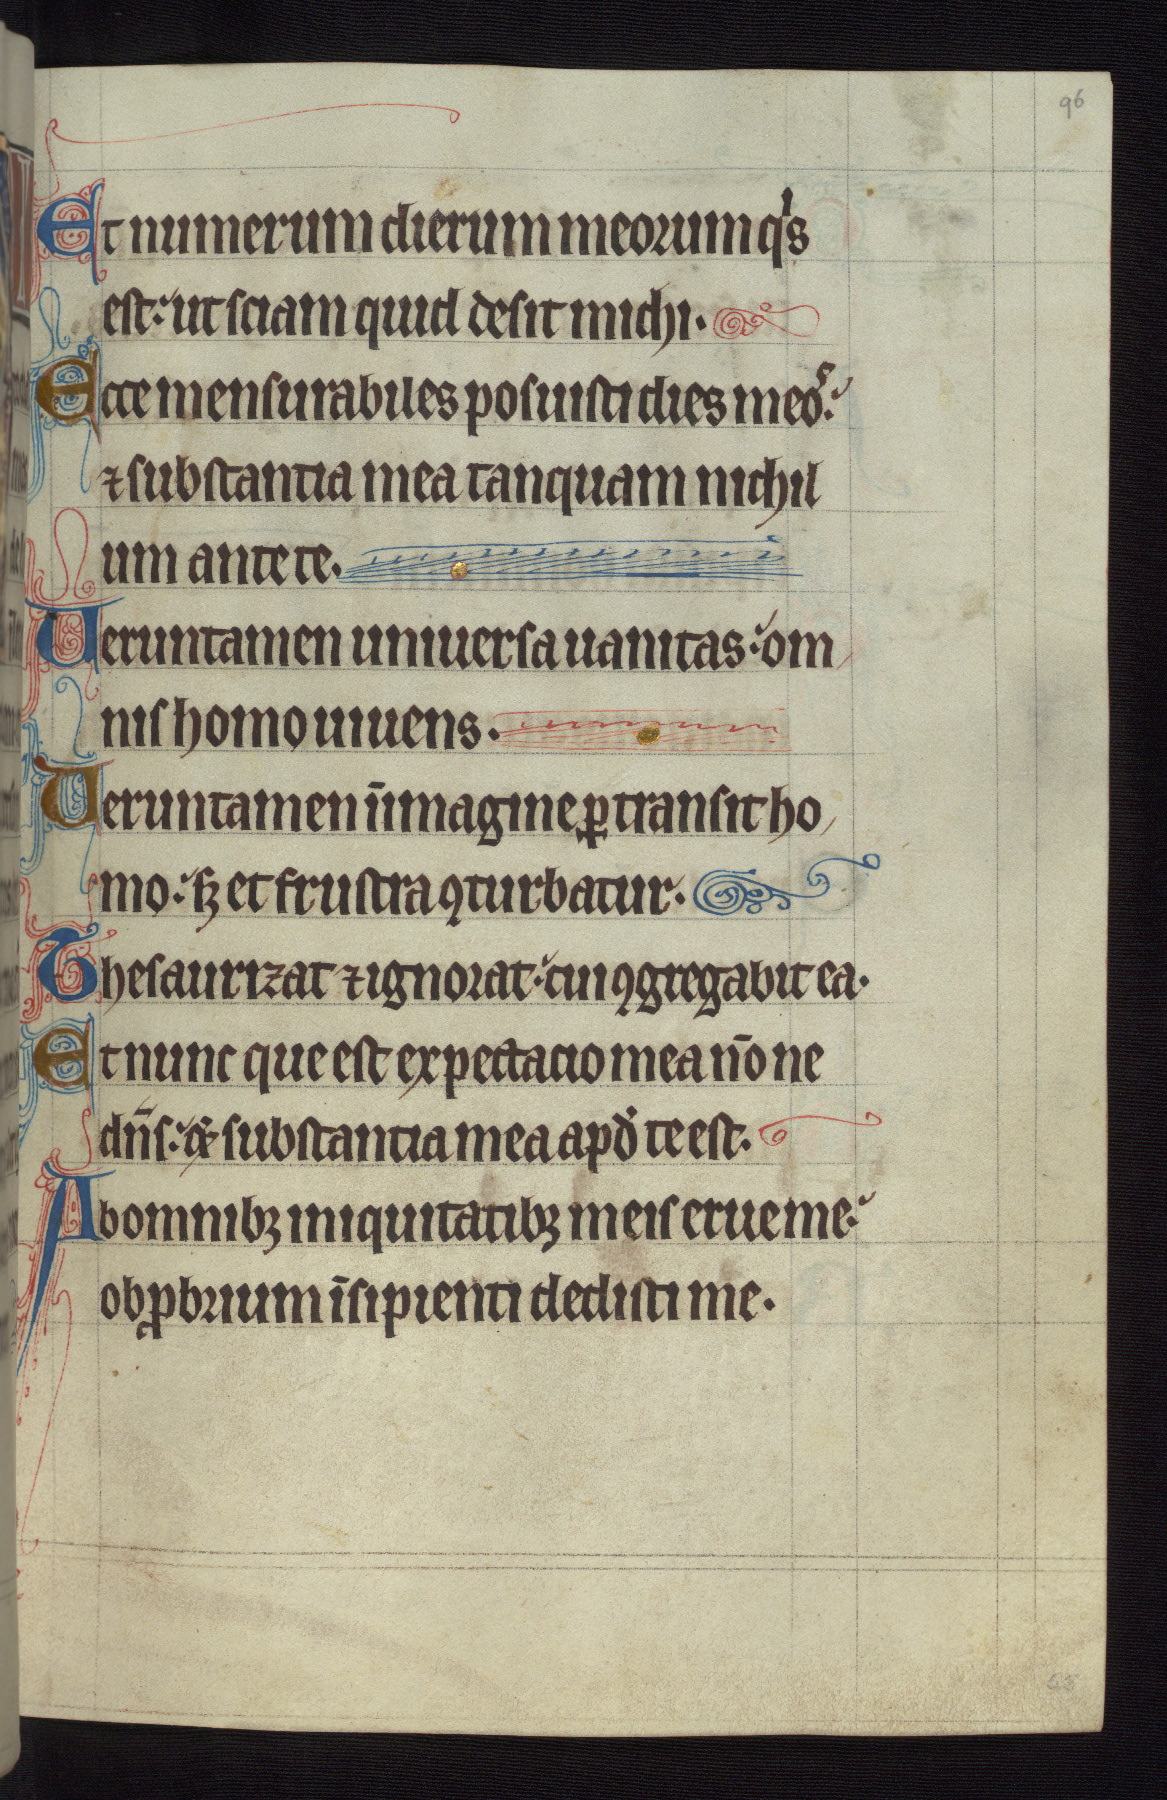 96
Et numerum dierum meorum qͥs
est: ut sciam quid desit michi.
Ecce mensurabiles posuisti dies meoꝭ:
⁊ substantia mea tanquam nichil
um ante te.
Ueruntamen uniuersa uanitas: om
nis homo uiuens.
Ueruntamen īimagine ꝑtransit ho
mo: sꝫ et frustra ꝯturbatur.
Thesaurizat ⁊ ignorat: cui ꝯgregabit ea.
Et nunc que est expectacio mea nōne
dn̄s: ⁊ substantia mea apđ te est.
Ab omnibꝫ iniquitatibꝫ meis erue me:
obꝓbrium īsipienti dedisti me.